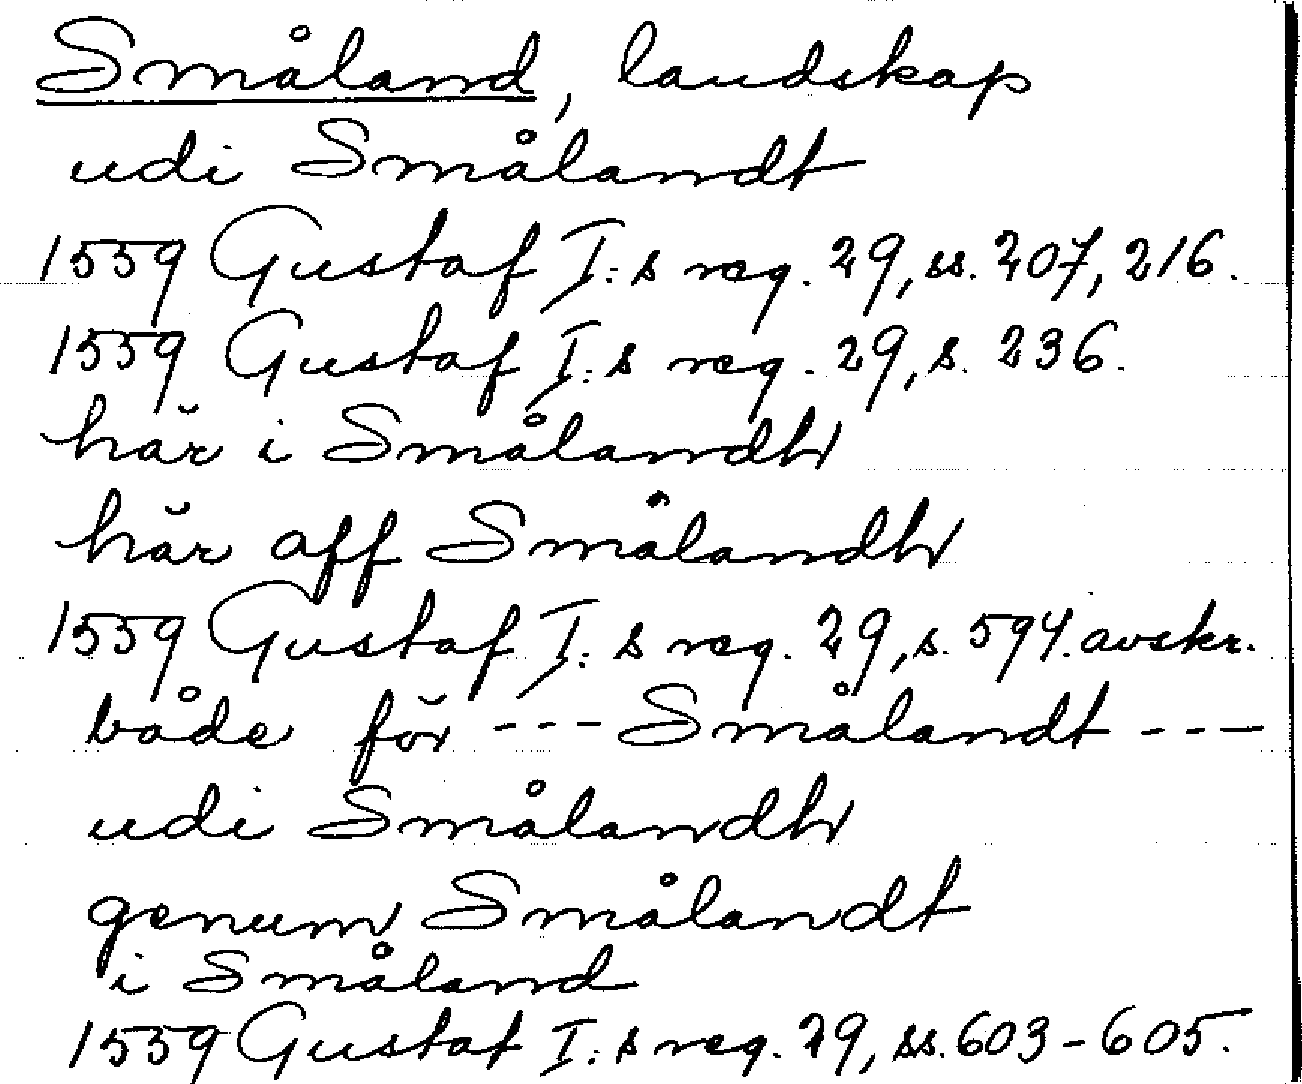 Småland, landskap
udi Smålandt
1559 Gustaf I:s reg. 29, ss. 207, 216.
1559 Gustaf I:s reg. 29, s. 236.
här i Smålandh
här aff Smålandh
1559 Gustaf I:s reg. 29, s. 594. avskr.
både för --- Smålandt ---
udi Smålandh
genum Smålandt
i Småland
1559 Gustaf I:s reg. 29, ss. 603-605.